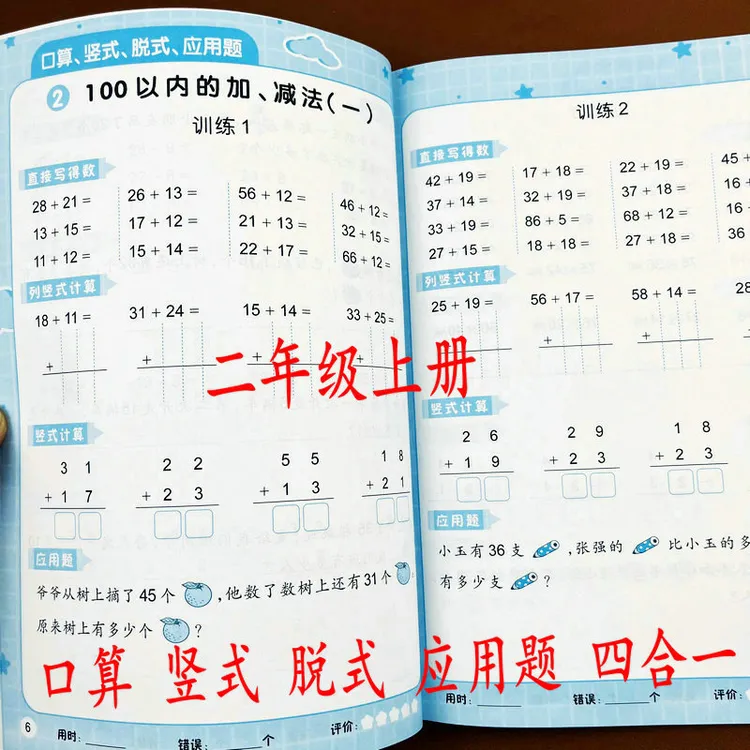 口算、竖式、脱式、应用题
2 100以内的加、减法(一)
训练1
直接写得数
28+21= 26+13= 56+12= 46+12=
13+15= 17+12= 21+13= 32+15=
11+12= 15+14= 22+17= 66+12=
列竖式计算
18+11= 31+24= 15+14= 33+25=
+ + + +
二年级上册
竖式计算
3 1 2 2 5 5 1 8
+ 1 7 + 2 3 + 1 3 + 2 1
应用题
爷爷从树上摘了45个,他数了数树上还有31个
原来树上有多少个?
口算 竖式 脱式 应用题 四合一
6
用时: 错误: 个 评价:
训练2
直接写得数
42+19= 17+18= 22+19= 45+
37+14= 32+19= 37+18= 16
33+19= 86+5= 68+12= 16+
27+15= 18+18= 27+18= 36
列竖式计算
25+19= 56+17= 58+14= 28
+ + +
竖式计算
2 6 2 9 1 8
+ 1 9 + 2 3 + 2 3
应用题
小玉有36支,张强的比小玉的多
有多少支?
用时: 错误: 个 评价: